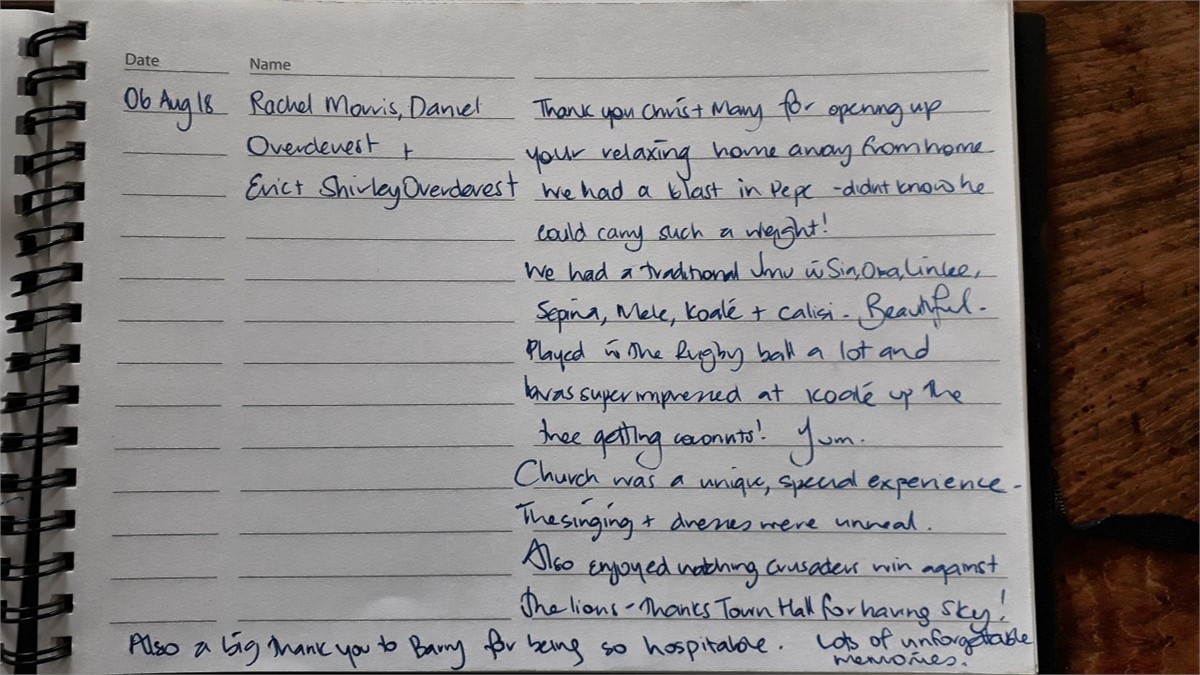 Date Name
06 Aug 18 Rachel Morris, Daniel Thank you Chris + Mary for opening up
Overdevest + your relaxing home away from home
Eric + Shirley Overdevest We had a blast in Pepe - didnt know he
could carry such a weight!
We had a traditional Umu w Sia, Ona, Linlee,
Sepina, Mele, Koalé + Calisi. Beautiful.
Played w the Rugby ball a lot and
was super impressed at Koalé up the
tree getting coconuts! Yum.
Church was a unique, special experience.
The singing + dresses were unreal.
Also enjoyed watching Crusaders win against
the lions - Thanks Town Hall for having Sky!
Also a big thank you to Barry for being so hospitable. Lots of unforgetable
memories.